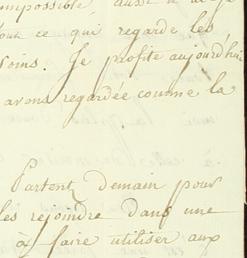 impossible aussi
tout ce qui regarde les
soins. Je profite aujourd'hui
avons regardée comme la
Partent Demain pour
les rejoindre Dans une
à faire utiliser aux